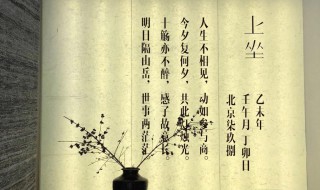 上坐
乙未年
壬午月 丁卯日
北京柒玖捌
人生不相见，动如参与商。
今夕复何夕，共此灯烛光。
十觞亦不醉，感子故意长。
明日隔山岳，世事两茫茫。